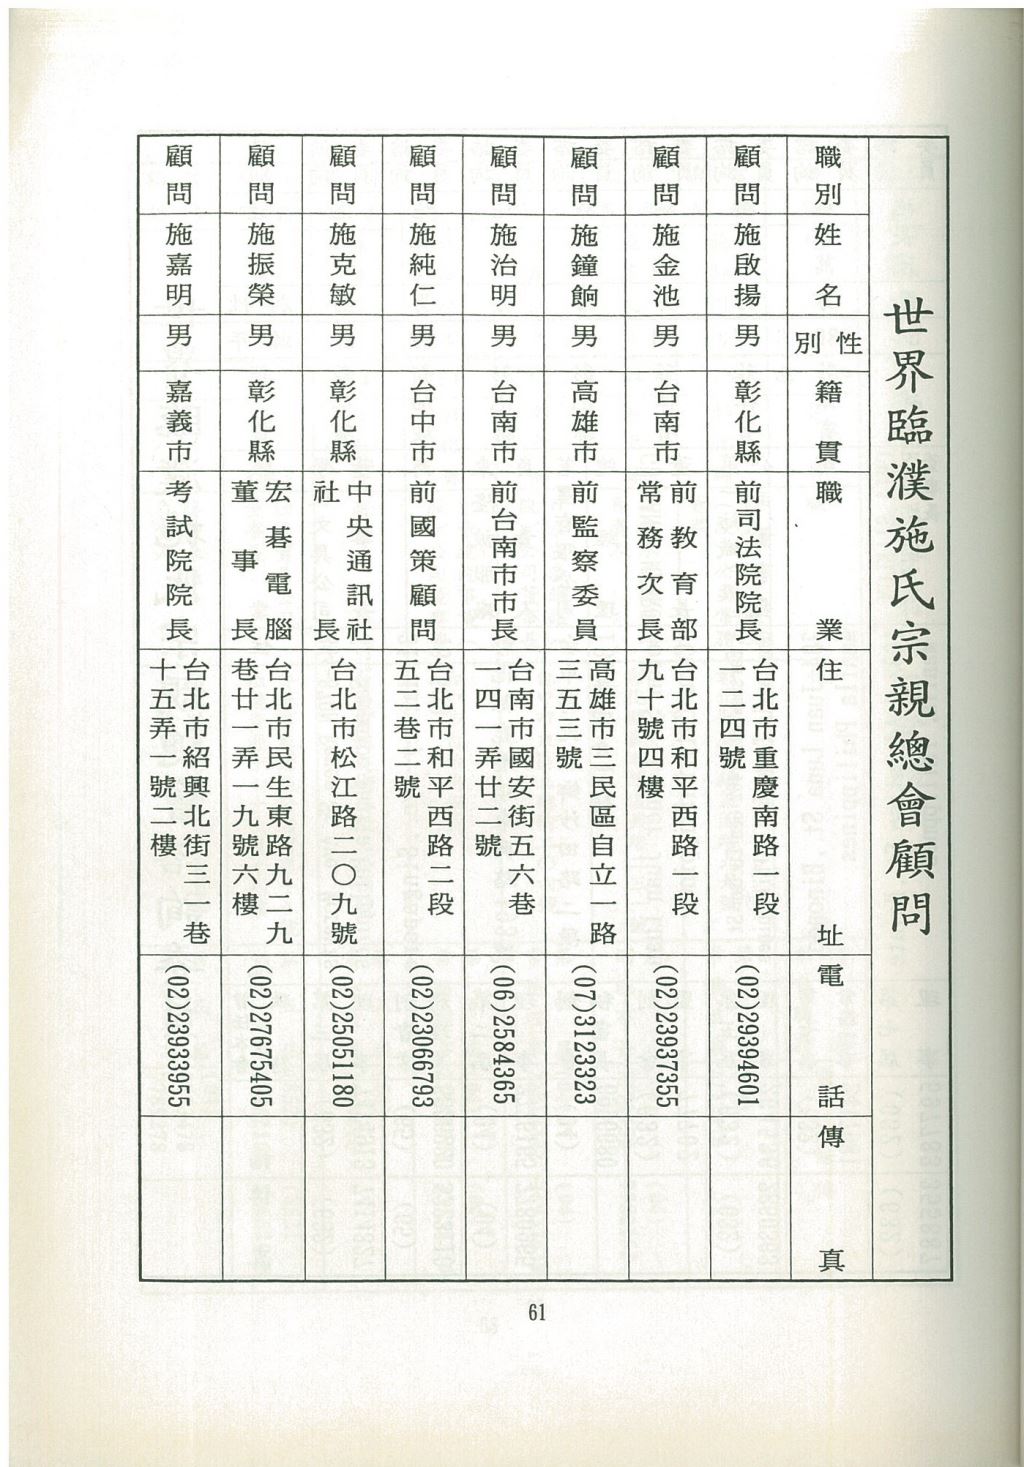 世界臨濮施氏宗親總會顧問
職別
姓名
性別
籍貫
職業
住址
電話
傳真
顧問
施啟揚
男
彰化縣
前司法院院長
台北市重慶南路一段
一二四號
(02)29394601
顧問
施金池
男
台南市
前教育部
常務次長
台北市和平西路一段
九十號四樓
(02)23937355
顧問
施鐘餉
男
高雄市
前監察委員
高雄市三民區自立一路
三五三號
(07)3123323
顧問
施治明
男
台南市
前台南市市長
台南市國安街五六巷
一四一弄廿二號
(06)2584365
顧問
施純仁
男
台中市
前國策顧問
台北市和平西路二段
五二巷二號
(02)23066793
顧問
施克敏
男
彰化縣
中央通訊社
社長
台北市松江路二〇九號
(02)25051180
顧問
施振榮
男
彰化縣
宏碁電腦
董事長
台北市民生東路九二九
巷廿一弄一九號六樓
(02)27675405
顧問
施嘉明
男
嘉義市
考試院院長
台北市紹興北街三一巷
十五弄一號二樓
(02)23933955
61